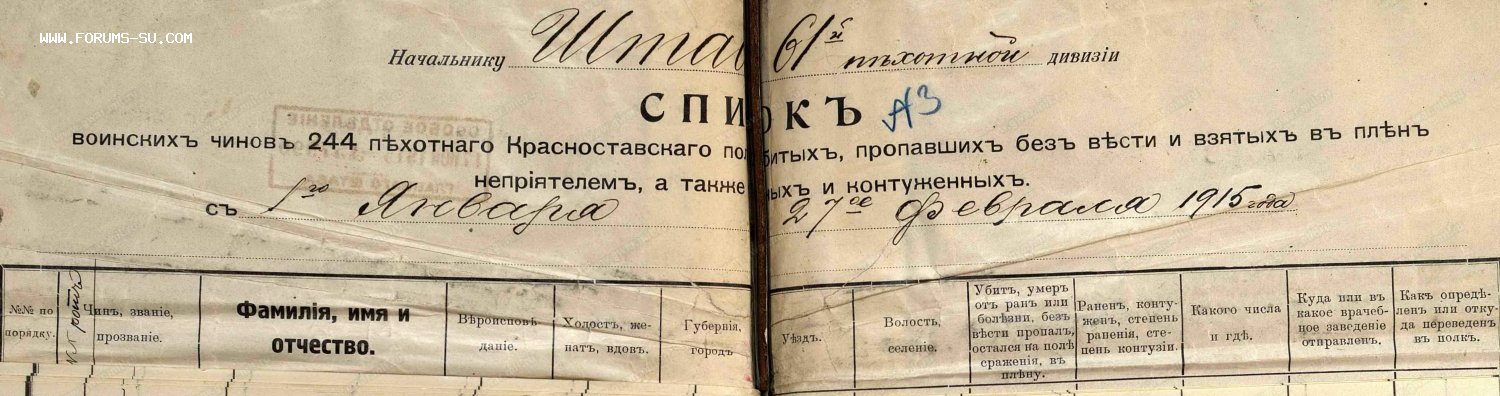 WWW.FORUMS-SU.COM
Начальнику Штаб 61й пѣхотной дивизіи
СПИ ОКЪ А3
воинскихъ чиновъ 244 пѣхотнаго Красноставскаго пол битыхъ, пропавшихъ безъ вѣсти и взятыхъ въ плѣн
непріятелемъ, а также ныхъ и контуженныхъ.
съ 1го Января 27ое Февраля 1915 года
ОСОБОЕ ОТДѢЛЕНІЕ
№№ по порядку.
№№ ротъ
Чинъ, званіе, прозваніе.
Фамилія, имя и отчество.
Вѣроисповѣданіе.
Холостъ, женатъ, вдовъ.
Губернія, городъ
Уѣздъ.
Волость, селеніе.
Убитъ, умеръ
отъ ранъ или
болѣзни, безъ
вѣсти пропалъ,
остался на полѣ
сраженія, въ
плѣну.
Раненъ, конту-
женъ, степень
раненія, сте-
пень контузіи.
Какого числа
и гдѣ.
Куда или въ
какое врачеб-
ное заведеніе
отправленъ.
Какъ опредѣ-
ленъ или отку-
да переведенъ
въ полкъ.